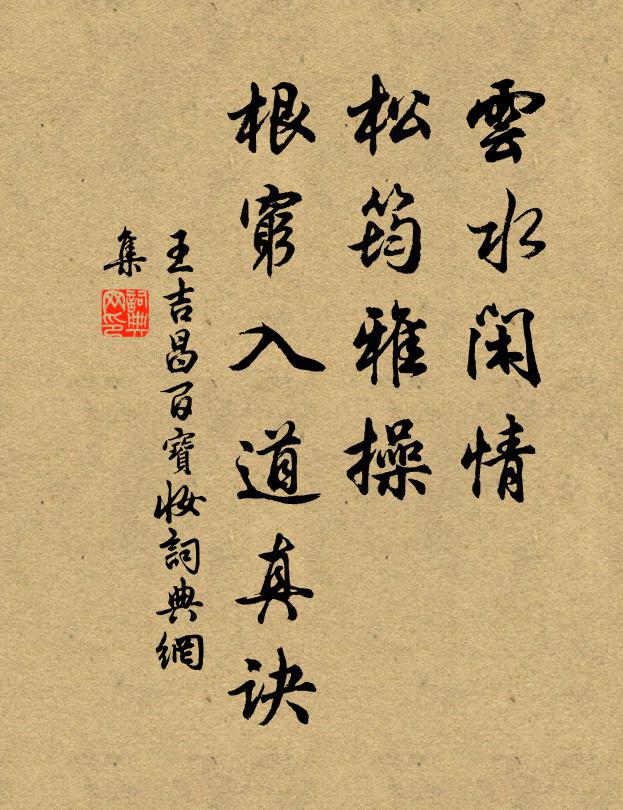 雲水閑情
松筠雅操
根窮入道真訣
王吉昌百寶妝詞典網
集
詞典
网印